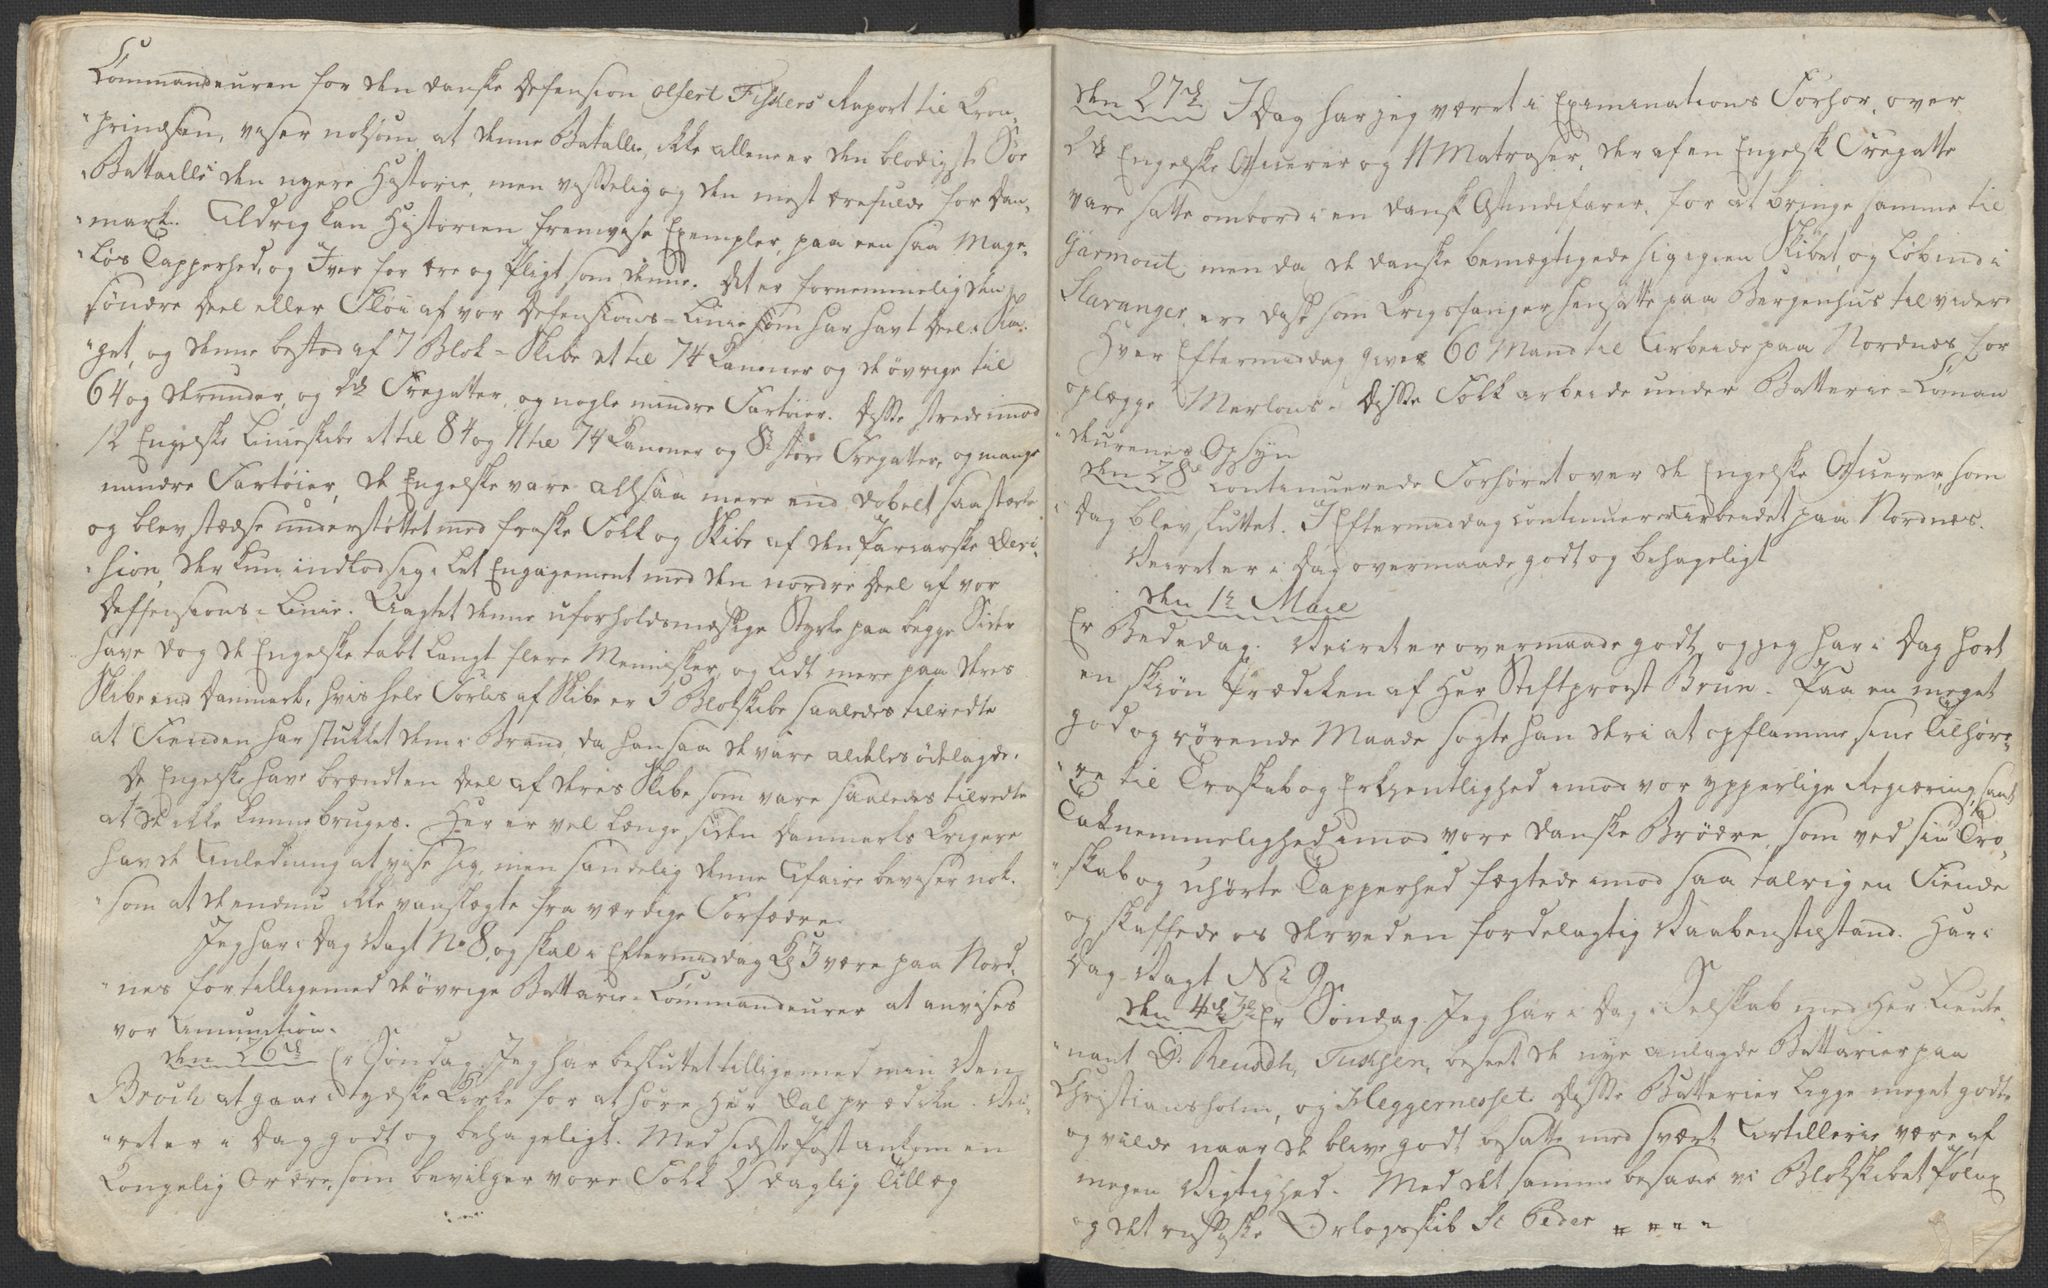 Commandeuren for den danske Defension Olfert Fishers Raport til Kron-
"prindsen, viser noksom at denne Batallie, ikke allene er den blodigste Søe
"Battaille i den nyere Historie, men visselig og den mest ærefulde for Dan-
"mark. Aldrig kan Historien fremvise Exempler, paa een saa Mage-
"løs Tapperhed, og Iver for ære og Pligt som denne. Det er fornemmelig den
søndre Deel eller Fløi af vor Defensions-Linie som har havt Deel i Sla-
"get, og denne bestod af 7 Blok-Skibe et til 74 Kanoner og de øvrige til
64 og derunder, og 2de Fregatter, og nogle mindre Fartøier. Disse strede imod
12 Engelske Linieskibe et til 84 og 11 til 74 Kanoner og 8te store Fregatter, og mange
mindre Fartøier, de Engelske vare altsaa mere end dobelt saa stærke
og blev stedse understøttet med friske Folk og Skibe af den Parkerske Devi-
"sion, der kun indlod sig i let Engagement med den nordre Deel af vor
Deffensions-Linie. Uagtet denne uforholdsmæssige Styrke paa begge Sider
have dog de Engelske tabt langt flere Mennisker, og lidt mere paa deres
Skibe end Danmark, hvis hele Forlis af Skibe er 3 Blokskibe saaledes tilredte
at Fienden har stukket dem i Brand, da han saa de vare aldeles ødelagde.
De Engelske have brændt en Deel af deres Skibe som vare saaledes tilredte
at de ikke kunne bruges. Her er vel længe siden Danmarks Krigere
havde Anledning at vise sig, men sandelig denne Afaire beviser nok-
"som at de endnu ikke vanslægte fra værdige Forfædre.
Jeg har i Dag Vagt No 8, og skal i Eftermiddag Kl 3 være paa Nord-
"nes for tilligemed de øvrige Battarie-Commandeurer at anvises
vor Amunition.
den 26de Er Søndag. Jeg har besluttet tilligemed min Ven
Broch at gaae i tydske Kirke for at høre Her Dal prædike. Vei-
"ret er i Dag godt og behageligt. Med sidste Post ankom en
Kongelig Ordre, som bevilger vore Folk 2 s daglig Tillæg
den 27de I Dag har jeg været i Examinations Forhør, over
2de Engelske Officerer og 11 Matroser, der af en Engelsk Fregatte
vare satte ombord i en dansk Ostindifarer, for at bringe samme til
Jarmout, men da de danske bemægtigede sig igien Skibet, og løb ind i
Stavanger, ere disse som Krigsfanger hensatte paa Bergenhus til videre
Hver Eftermiddag gives 60 Mand til Arbeide paa Nordnes for
oplægge Merlons. Disse Folk arbeide under Batterie-Coman
"deurenes Opsyn
den 28de Continuerede Forhøret over de Engelske Officerer, som
i Dag blev sluttet. I Eftermiddag continuered arbeidet paa Nordnes.
Veiret er i Dag overmaade godt og behageligt
den 1te Maie
Er Bededag. Veiret er overmaade godt, og jeg har i Dag hørt
en skiøn Prædiken af Her Stiftprovst Brun. Paa en meget
god og rørende Maade søgte han deri at opflamme sine Tilhøre-
"re til Troskab og Erkjentlighed imod vor ypperlige Regiering, samt
Taknemmelighed imod vore danske Brødre, som ved sin Tro-
"skab og uhørte Tapperhed fægtede imod saa talrig en Fiende
og skaffede os derved en fordelagtig Vaabenstilstand. Har i
Dag Vagt No 9.
den 4de Er Søndag. Jeg har i Dag i Selskab med Her Lieute-
"nant D. Reusch, Tuchsen, beseet de nye anlagde Battarier paa
Christiansholm, og Heggernesset. Disse Batterier ligge meget godt
og vilde naar de blive godt besatte med svært Artillerie, være af
megen Vigtighed. Med det samme besaae vi Blokskibet Polux
og det russiske Orlogsskib St Peder